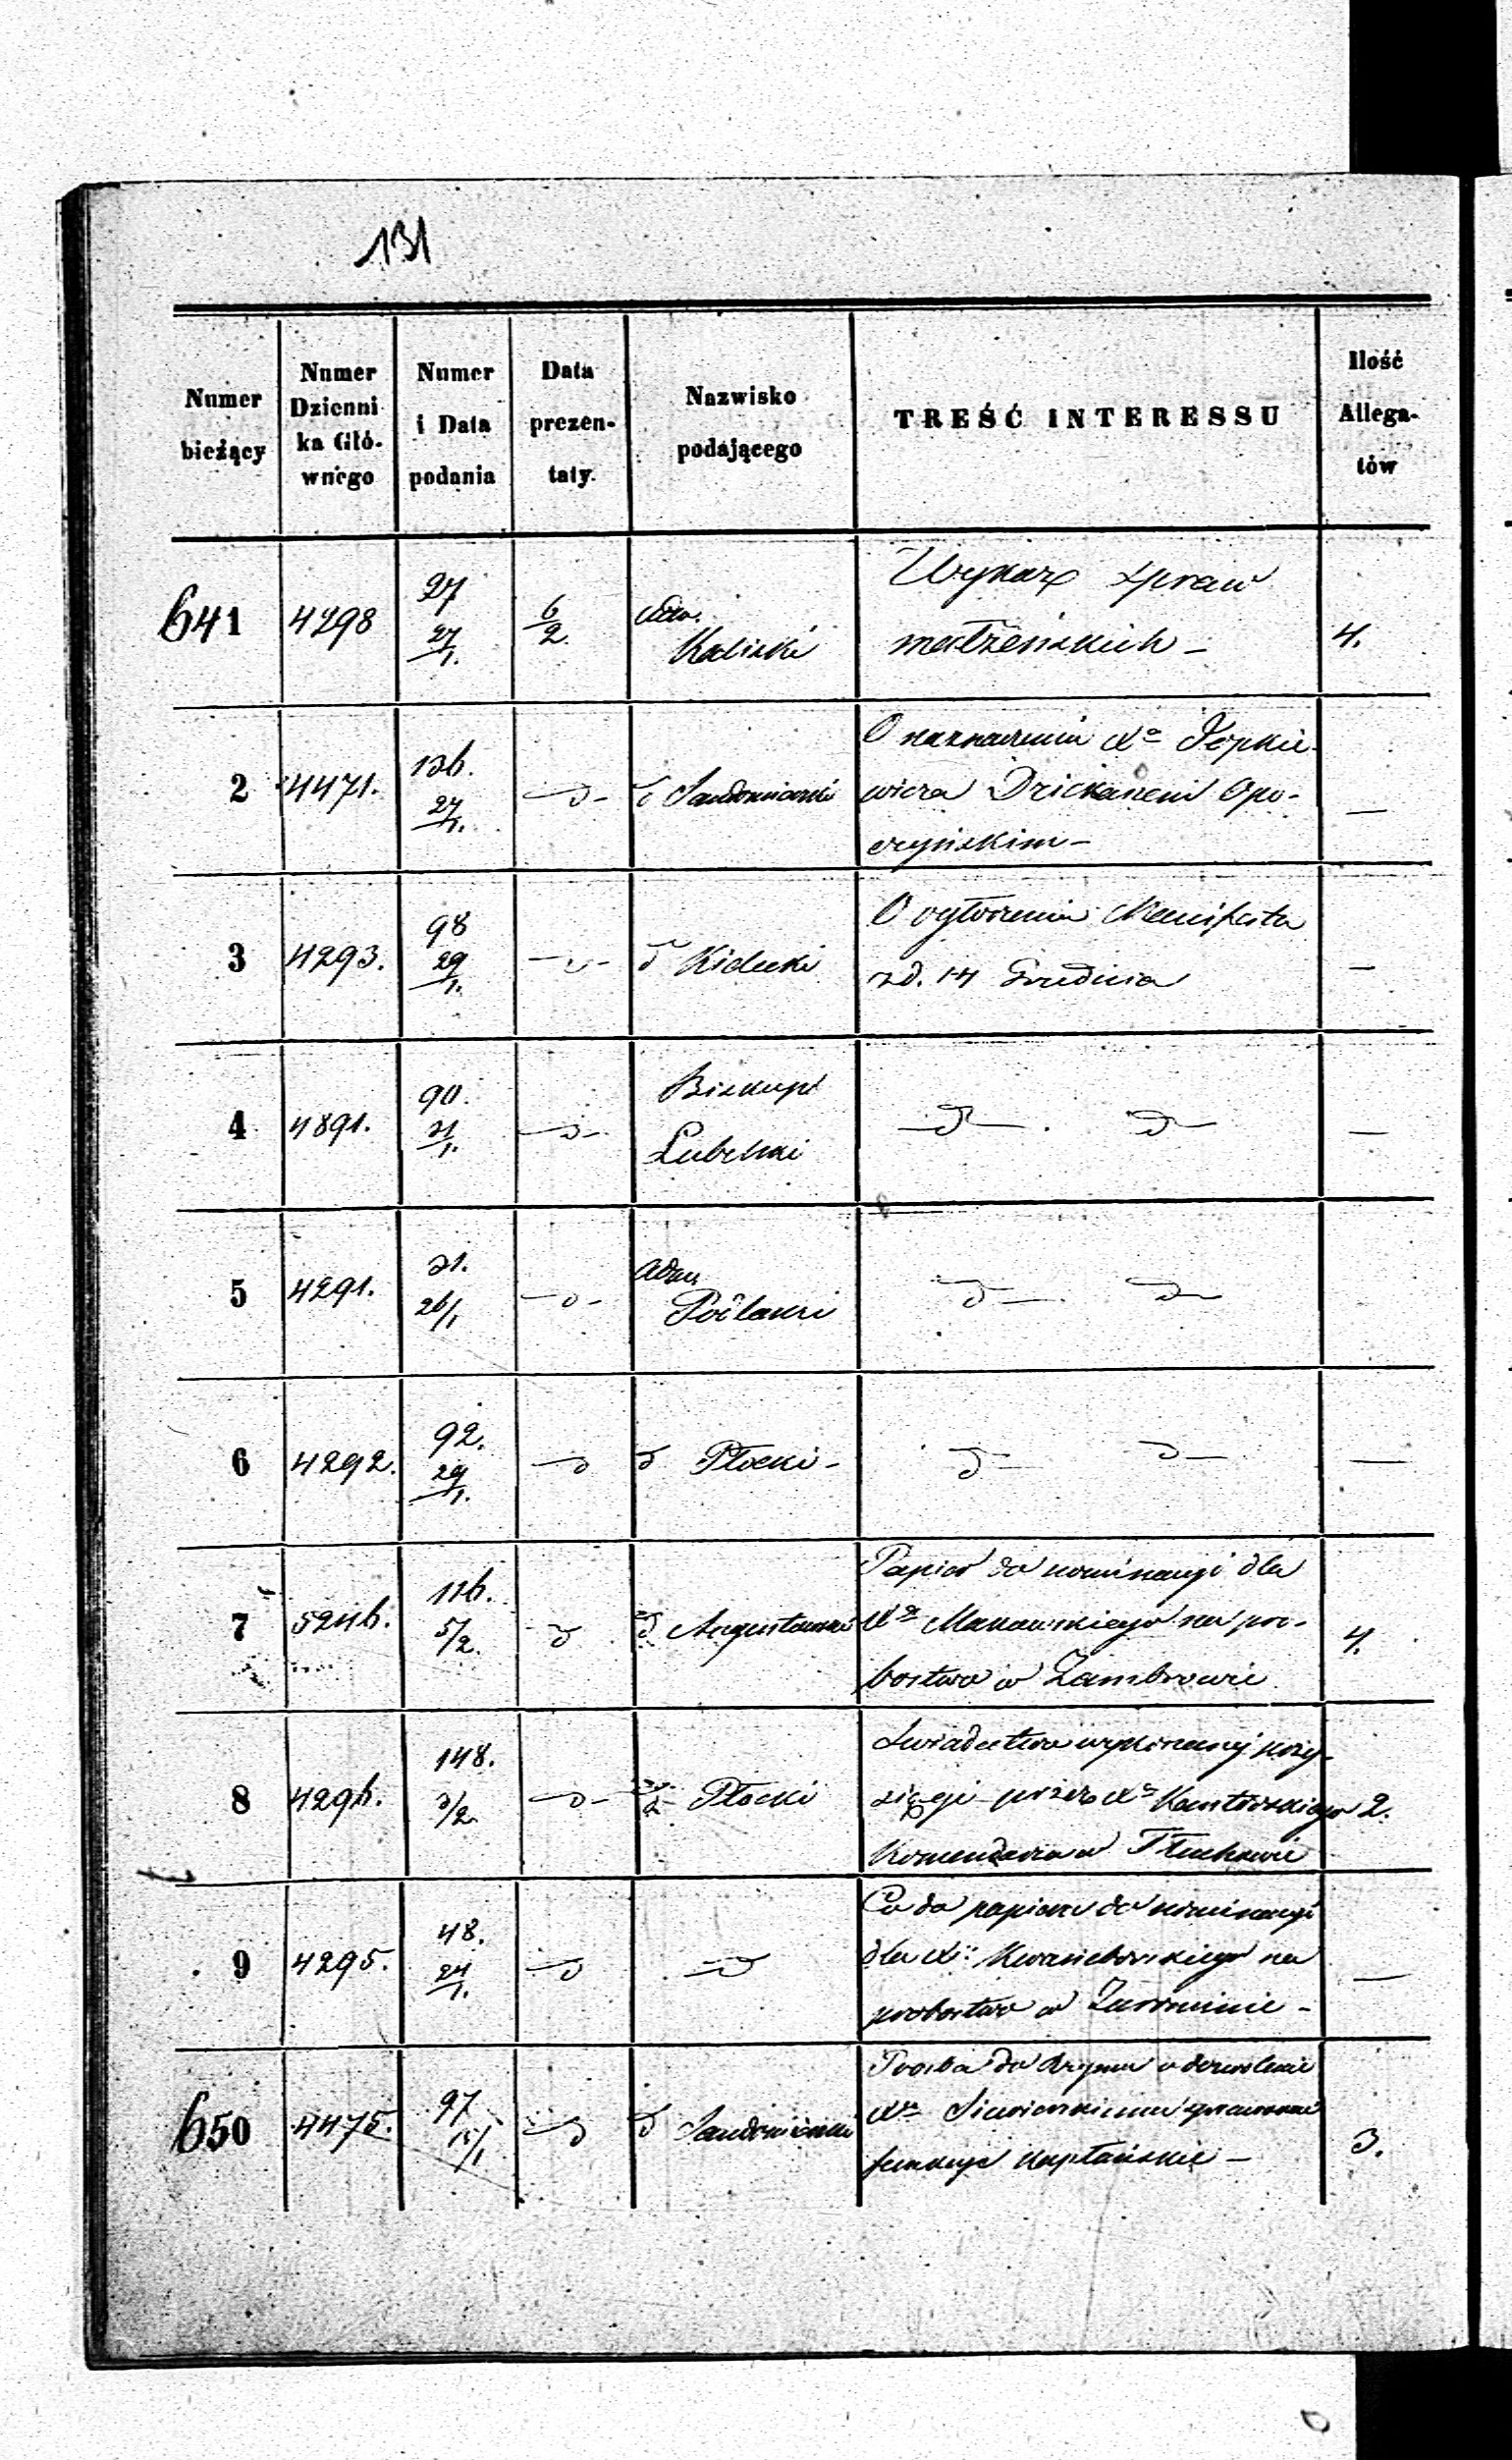 131
Numer bieżący
Numer Dzienni ka Głó- wnego
Numer i Data podania
Data prezen- taty.
Nazwisko podającego
TREŚĆ INTERESSU
Ilość Allega- tów
641 4298 27 27/1. 6/2 Adm. Kaliski
Wykaz spraw
małżeńskich –
4.
2 4471. 136. 27/1. – d – d Sandomierski
O naznaczeniu Xa Topkie-
wicza Dziekanem Opo-
czyńskim –
—
3 4293. 98 29/1. – d – d Kielecki
O ogłoszeniu Manifestu
z d. 14 Grudnia
—
4 4891. 90. 31/1. – d – Biskup Lubelski
– d – . – d –
—
5 4291. 31. 26/1 – d – Adm Podlaski
– d – . – d –
6 4292. 92. 29/1. – d d Płocki –
– d – – d –
—
7 5246. 116. 5/2. – d d Augustowski
Papier do nominacyi dla
Xa Makowskiego na pro-
bostwo w Zambrowie
4.
8 4296. 148. 3/2. – d – d Płocki
Swiadectwo wykonanej przy-
sięgi przez Xa Kantorskiego 2.
Komendarza w Tłuchowie
9 4295. 48. 24/1. – d – d
Co do papieru do nominacyi
dla Xa na
probostwo w Żurominie –
—
650 4475. 97 15/1 – d d Sandomierski
Prośba do Rzymu o dozwolenie
Xu sprawować
funkcye kapłańskie –
3.